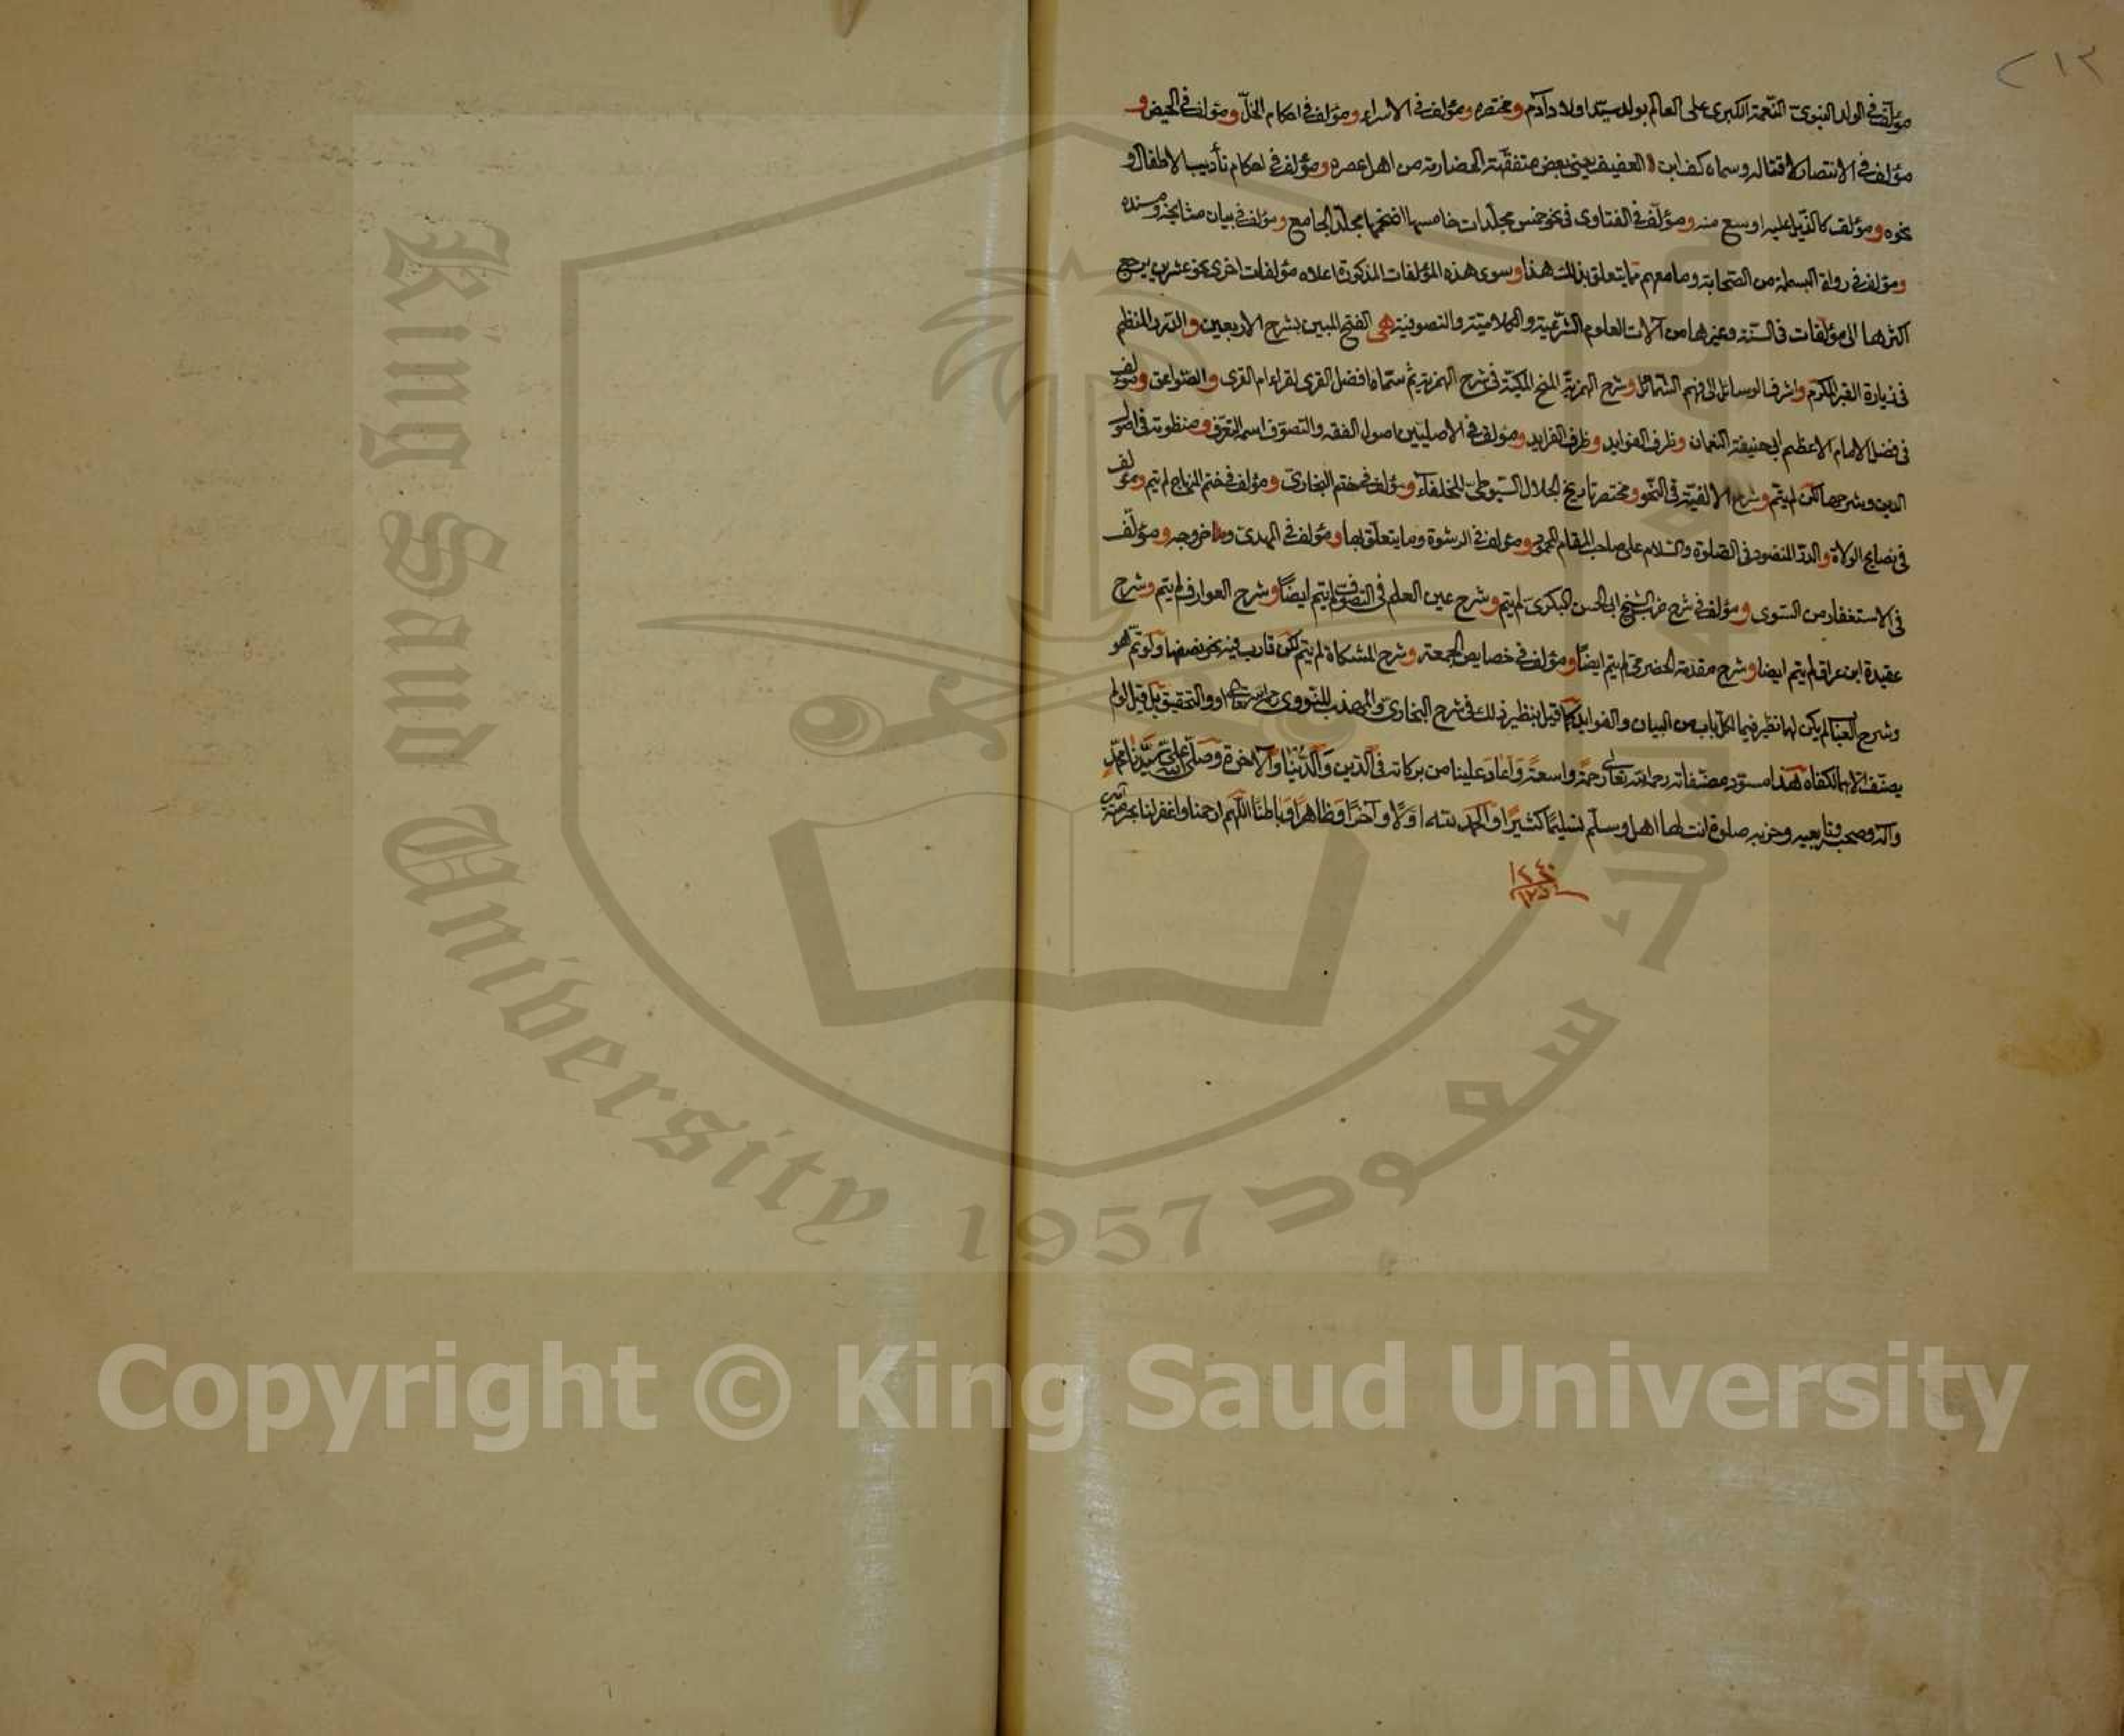 ٢١٣
مؤلف في المولد النبوي النعمة الكبرى على العالم بولد سيد اولاد آدم ومختصره ومؤلف في الاسراء ومؤلف في احكام الخل ومؤلف في الحيض و
مؤلف في الانتصار وسماه كف ابن العفيف يعني بعض متفقهة الحضارمة من اهل عصره ومؤلف في احكام تأديب الاطفال و
نحوه ومؤلف كالذيل عليه اوسع منه ومؤلف في الفتاوى في نحو خمس مجلدات خامسها اضخمها مجلد الجامع ومؤلف في بيان مشايخه ومسنده
ومؤلف في رواة البسملة من الصحابة وما معهم مما يتعلق بذلك هذا وسوى هذه المؤلفات المذكورة اعلاه مؤلفات اخرى نحو عشرين يرجح
اكثرها الى مؤلفات في السنة وغيرها من آلات العلوم الشرعية والكلامية والتصوفية هي الفتح المبين بشرح الاربعين والدر المنظم
في زيارة القبر المكرم واشرف الوسائل الى فهم الشمائل وشرح الهمزية المنح المكية في شرح الهمزية ثم سماه افضل القرى لقراء ام القرى والصواعق ومؤلف
في فضل الامام الاعظم ابي حنيفة النعمان وظرف الفوايد وظرف الفرايد ومؤلف في الاصليين اصول الفقه والتصوف اسمه التعرف ومنظومة في اصول
الدين وشرحها لكن لم يتم وشرح الالفية في النحو ومختصر تاريخ الجلال السيوطي للخلفاء ومؤلف في ختم البخاري ومؤلف في ختم المنهاج لم يتم ومؤلف
في نصايح الولاة والدر المنضود في الصلوة والسلام على صاحب المقام المحمود ومؤلف في الرشوة وما يتعلق بها ومؤلف في المهدي وخروجه ومؤلف
في الاستغفار من السوى ومؤلف في شرح حزب الشيخ ابي الحسن البكري لم يتم وشرح عين العلم في التصوف لم يتم ايضا وشرح العوارف لم يتم وشرح
عقيدة ابن عراق لم يتم ايضا وشرح مقدمة الحضرمي لم يتم ايضا ومؤلف في خصايص الجمعة وشرح المشكاة لم يتم لكن قارب فيه نحو نصفها ولو تم هو
وشرح العباب لم يكن لهما نظير فيما لكل باب من البيان والفوايد كما قيل بنظير ذلك في شرح البخاري والمهذب للنووي والتحقيق بل قيل لو لم
يصنف الا هما لكفاه هذا مسود مصنفاته رحمه الله تعالى رحمة واسعة واعاد علينا من بركاته في الدين والدنيا والآخرة وصلى الله على سيدنا محمد
وآله وصحبه وتابعيه وحزبه صلوة انت لها اهل وسلم تسليما كثيرا والحمد لله اولا وآخرا وظاهرا وباطنا اللهم ارحمنا واغفر لنا بحرمته آمين
King Saud University 1957
سعود
Copyright © King Saud University